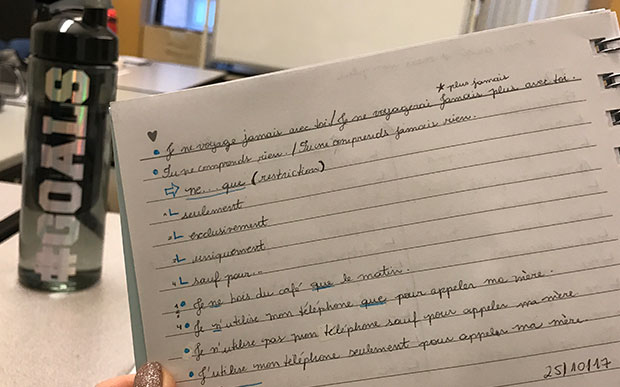 #GOALS
* plus jamais
Je ne voyage jamais avec toi / Je ne voyagerai jamais plus avec toi.
Tu ne comprends rien. / Tu ne comprends jamais rien.
⇨ ne... que (restriction)
seulement
exclusivement
uniquement
sauf pour...
Je ne bois du café que le matin.
Je n'utilise mon téléphone que pour appeler ma mère.
Je n'utilise pas mon téléphone sauf pour appeler ma mère
J'utilise mon téléphone seulement pour appeler ma mère.
25/10/17